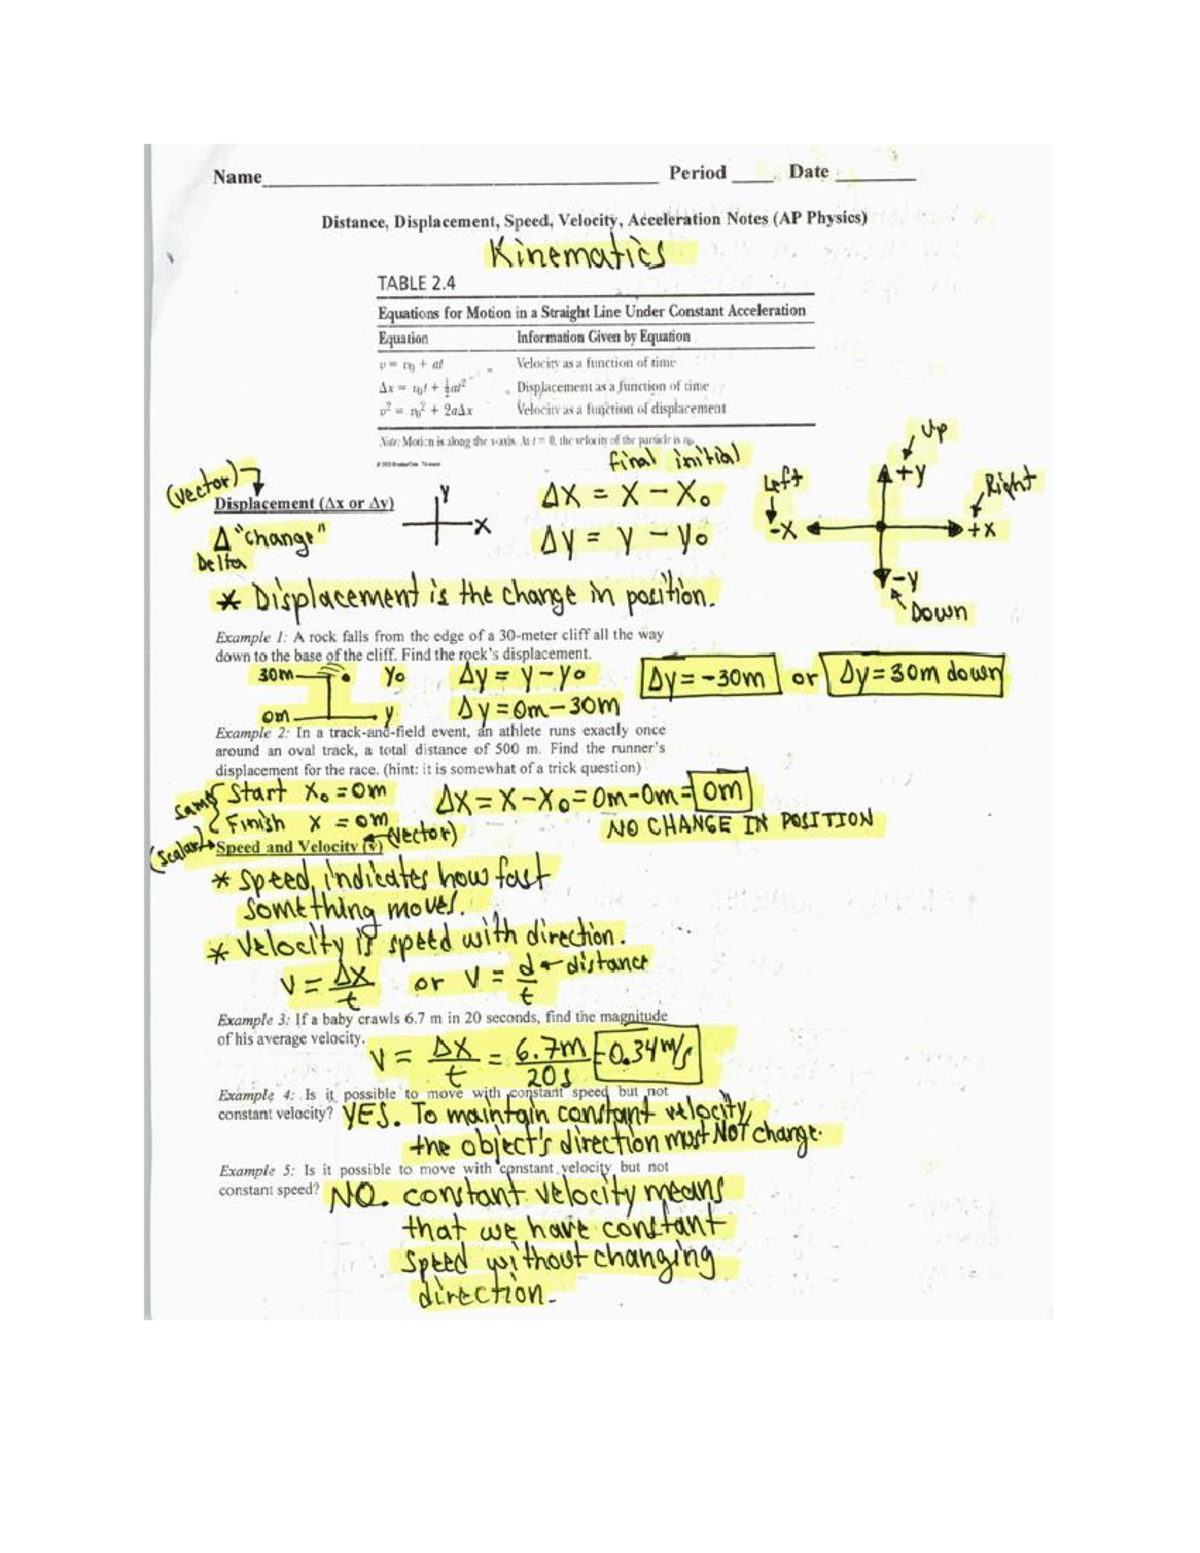 Name Period Date
Distance, Displacement, Speed, Velocity, Acceleration Notes (AP Physics)
Kinematics
TABLE 2.4
Equations for Motion in a Straight Line Under Constant Acceleration
Equation Information Given by Equation
v = v₀ + at Velocity as a function of time
Δx = v₀t + ½at² Displacement as a function of time
v² = v₀² + 2aΔx Velocity as a function of displacement
Note: Motion is along the x-axis. At t = 0, the velocity of the particle is v₀.
final initial
(vector)
Displacement (Δx or Δy)
Y
X
Δx = x - x₀
Δy = y - y₀
Up
+y
Left
-x
Right
+x
-y
Down
Δ "change"
Delta
* Displacement is the change in position.
Example 1: A rock falls from the edge of a 30-meter cliff all the way
down to the base of the cliff. Find the rock's displacement.
30m y₀ Δy = y - y₀ Δy = -30m or Δy = 30m down
0m y Δy = 0m - 30m
Example 2: In a track-and-field event, an athlete runs exactly once
around an oval track, a total distance of 500 m. Find the runner's
displacement for the race. (hint: it is somewhat of a trick question)
same Start x₀ = 0m Δx = x - x₀ = 0m - 0m = 0m
Finish x = 0m NO CHANGE IN POSITION
(scalar) Speed and Velocity (v) (vector)
* Speed indicates how fast
something moves.
* Velocity is speed with direction.
v = Δx/t or v = d/t distance
Example 3: If a baby crawls 6.7 m in 20 seconds, find the magnitude
of his average velocity.
v = Δx/t = 6.7m/20s = 0.34 m/s
Example 4: Is it possible to move with constant speed but not
constant velocity? YES. To maintain constant velocity,
the object's direction must NOT change.
Example 5: Is it possible to move with constant velocity but not
constant speed? NO. constant velocity means
that we have constant
speed without changing
direction.